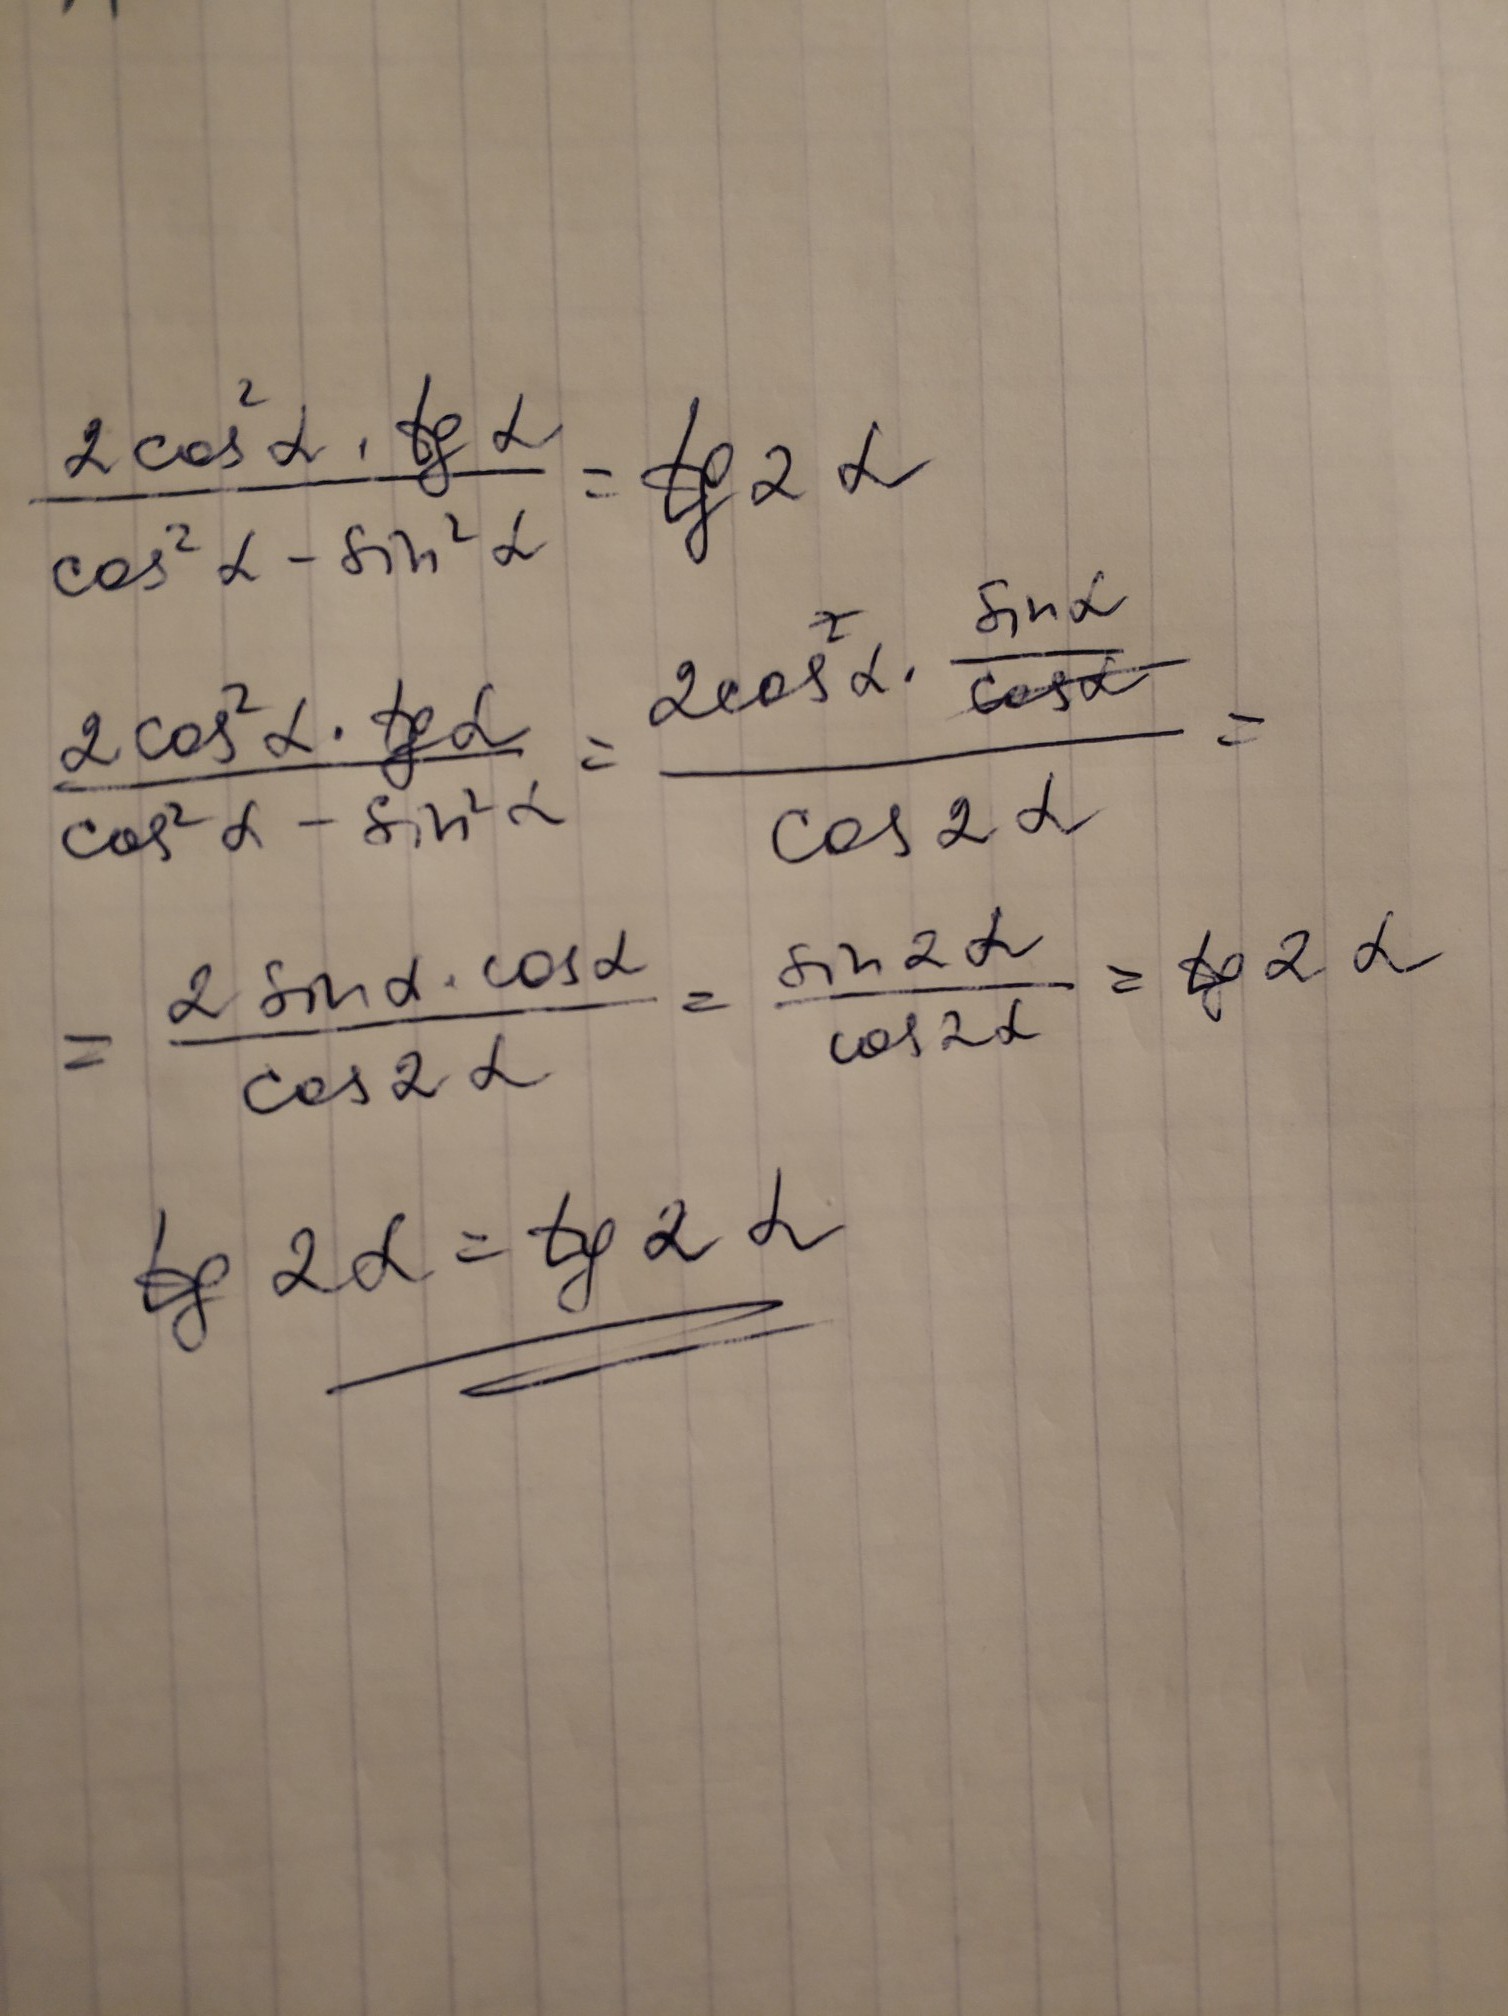 2cos²α · tg α / cos²α - sin²α = tg 2α
2cos²α · tg α / cos²α - sin²α = 2cos²α · sin α / cos α / cos 2α =
= 2 sin α · cos α / cos 2α = sin 2α / cos 2α = tg 2α
tg 2α = tg 2α